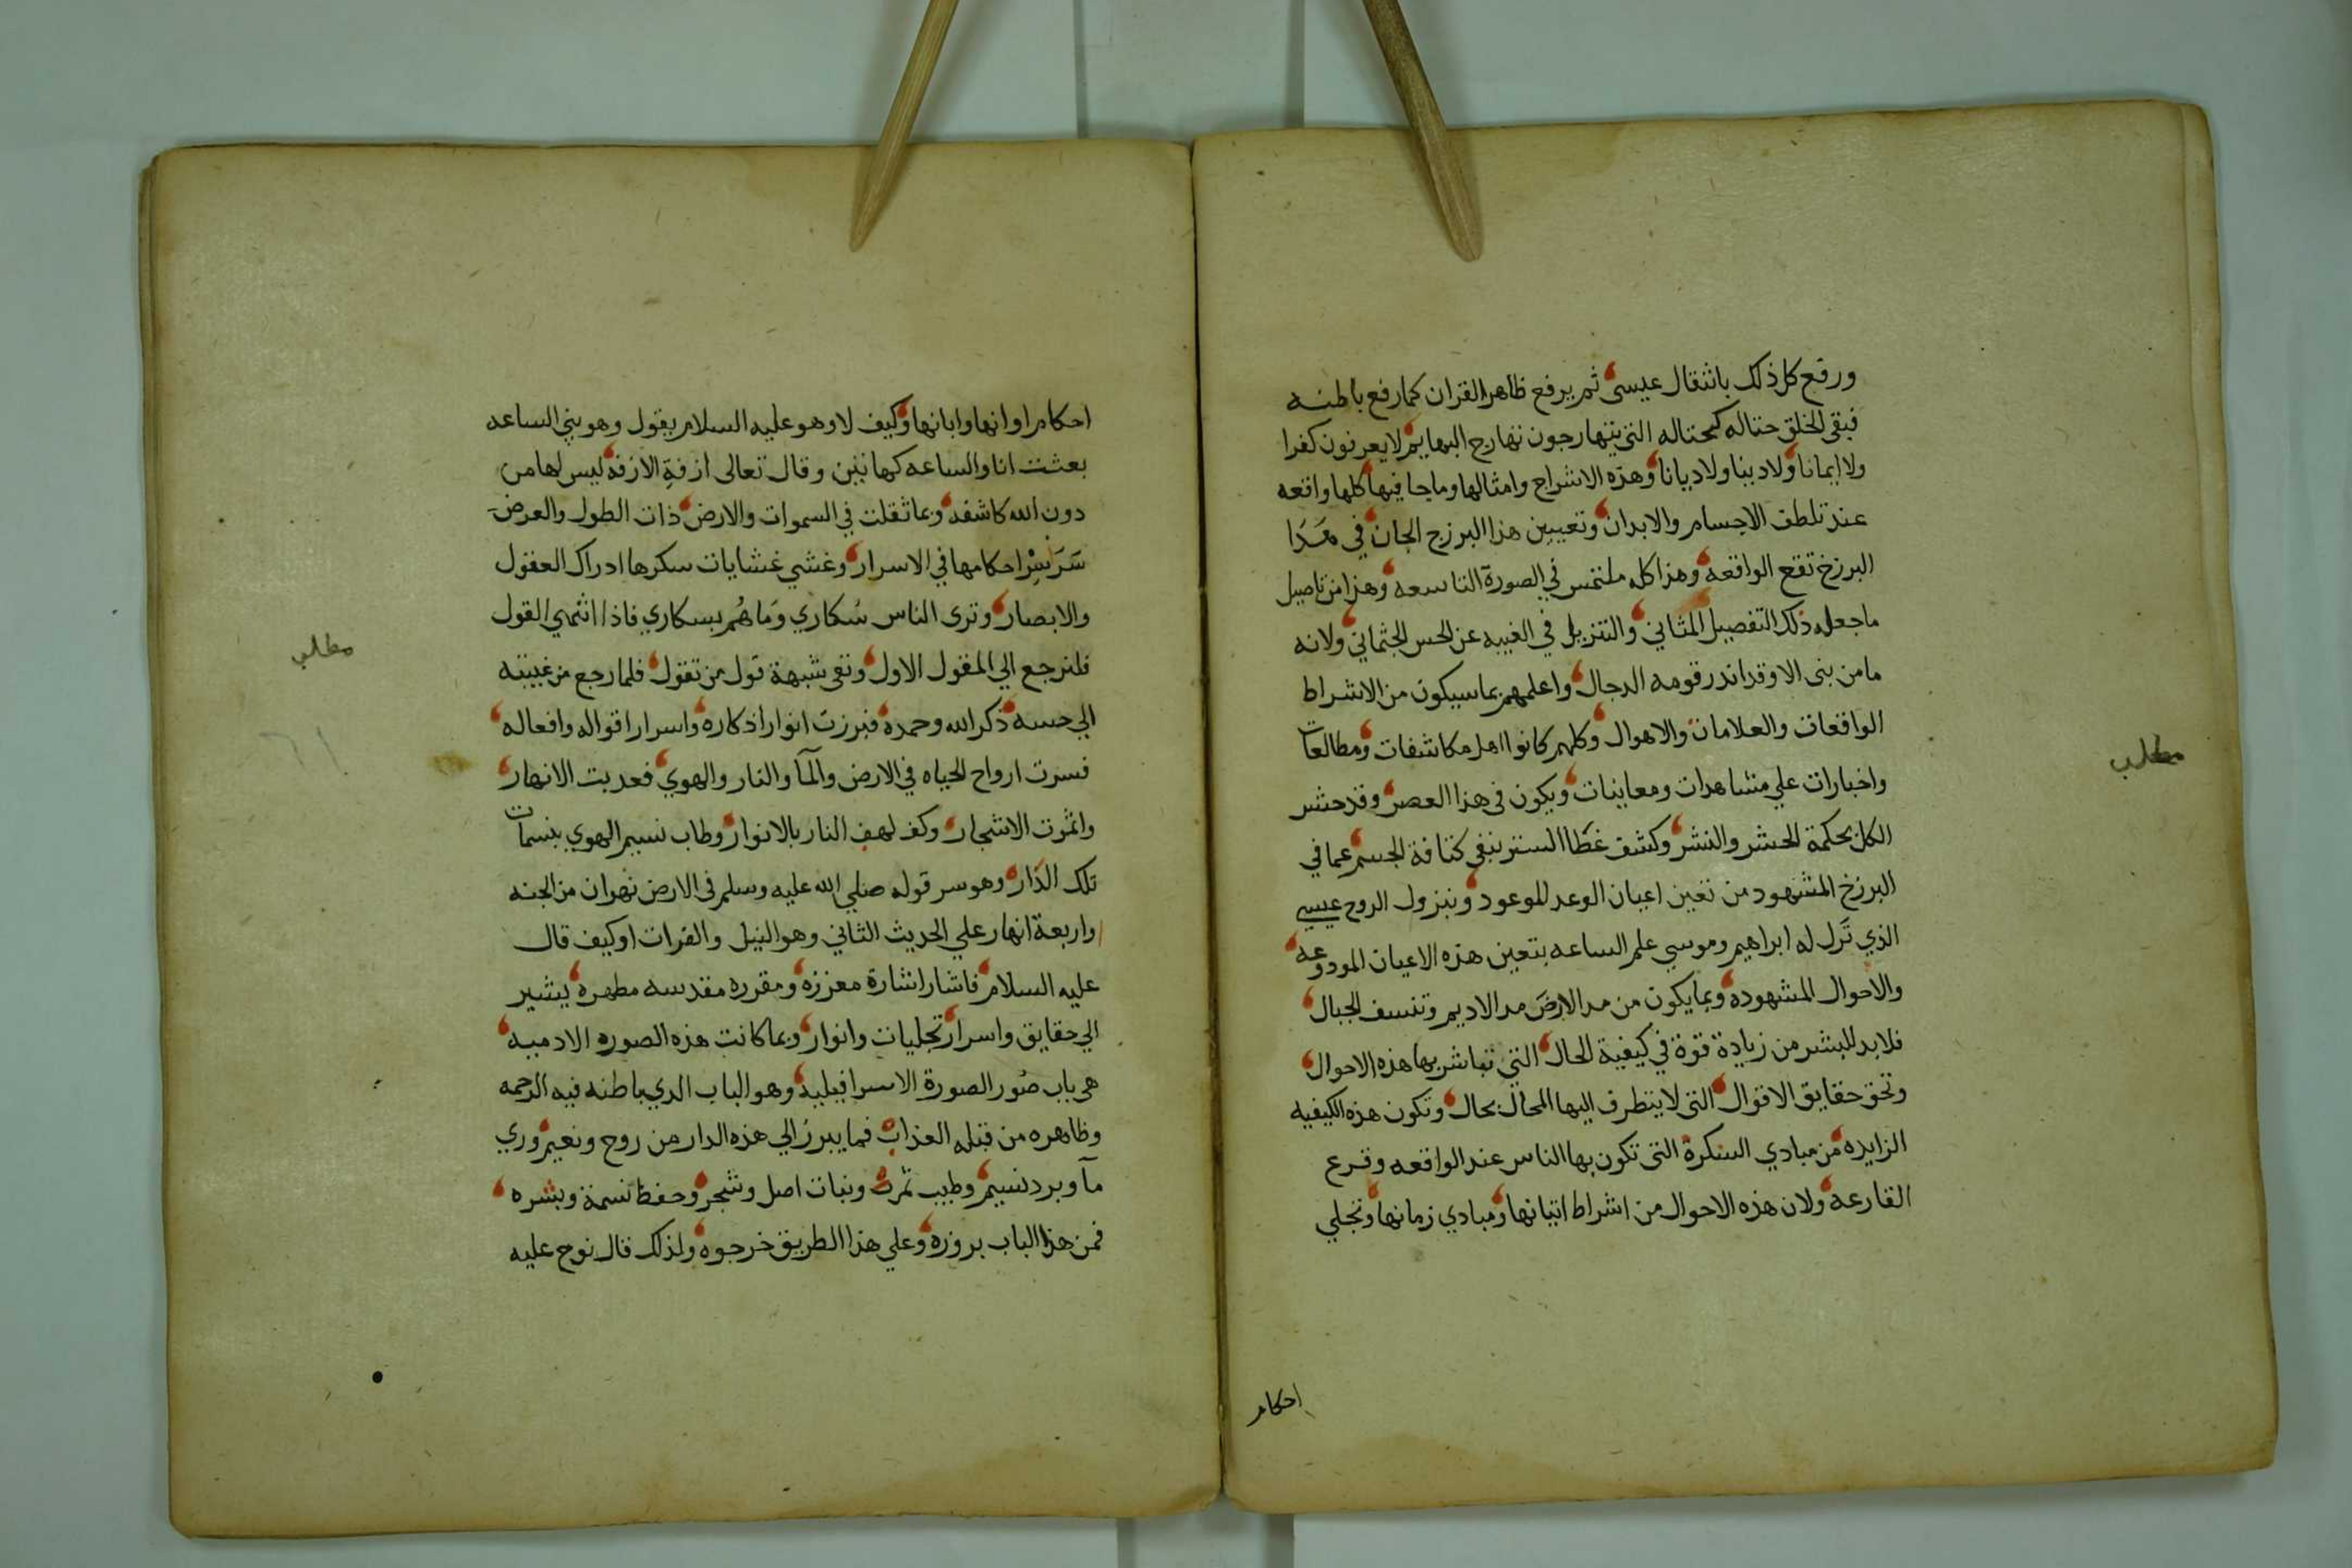 ورفع كل ذلك بانتقال عيسى ثم يرفع ظاهر القران كما رفع باطنه
فيبقى الخلق حثاله كحثاله التي يتهارجون تهارج البهايم لا يعرفون كفرا
ولا ايمانا ولا دينا ولا ديانا وهذه الاشراج وامثالها وما جا فيها كلها واقعه
عند تلطف الاجسام والابدان وتعيين هذا البرزخ الجان في هذا
البرزخ تقع الواقعه وهذا كله ملتمس في الصورة التاسعه وهذا من تاصيل
ما جعله ذلك التفصيل المثاني والتنزيل في الغيبه عن الحس الجثماني ولانه
ما من نبى الا وقد انذر قومه الدجال واعلمهم بما سيكون من الاشراط
الواقعات والعلامات والاهوال وكلهم كانوا اهل مكاشفات ومطالعات
واخبارات علي مشاهدات ومعاينات ويكون في هذا العصر وقد حشر
الكل بحكمة الحشر والنشر وكشف غطا الستر بنفي كثافة الجسم عما في
البرزخ المشهود من تعين اعيان الوعد الموعود وبنزول الروح عيسي
الذي نزل له ابراهيم وموسي علم الساعه بتعين هذه الاعيان المودوعه
والاحوال المشهوده وبما يكون من مد الارض مد الاديم وتنسف الجبال
فلا بد للبشر من زيادة قوة في كيفية الحال التي تباشر بها هذه الاحوال
وتحق حقايق الاقوال التي لا يتطرف اليها المحال بحال وتكون هذه الكيفيه
الزايده من مبادي السكرة التي تكون بها الناس عند الواقعه وقرع
القارعه ولان هذه الاحوال من اشراط اتيانها ومبادي زمانها وتجلي
احكام
مطلب
احكام اوانها وابانها وكيف لا وهو عليه السلام يقول وهو بني الساعه
بعثت انا والساعه كهاتين وقال تعالى ازفة الازفه ليس لها من
دون الله كاشفه وبما ثقلت في السموات والارض ذات الطول والعرض
سرت احكامها في الاسرار وغشي غشايات سكرها ادراك العقول
والابصار وترى الناس سُكاري وَما هُم بسكاري فاذا انتهي القول
فلنرجع الي المقول الاول ونفي شبهة قول من تقول فلما رجع من غيبته
الي حسه ذكر الله وحمده فبرزت انوار اذكاره واسرار اقواله وافعاله
فسرت ارواح الحياه في الارض والمآ والنار والهوي فعذبت الانهار
واثمرت الاشجار وكف لهف النار بالانوار وطاب نسيم الهوي بنسمات
تلك الدار وهو سر قوله صلي الله عليه وسلم في الارض نهران من الجنه
واربعة انهار علي الحديث الثاني وهو النيل والفرات او كيف قال
عليه السلام فاشار اشارة معززه ومقرره مقدسه مطهره يشير
الي حقايق واسرار تجليات وانوار وبما كانت هذه الصوره الادميه
هي باب صُور الصورة الاسرافيليه وهو الباب الدي باطنه فيه الرحمه
وظاهره من قبله العذاب فما يبرز الي هذه الدار من روح ونعيم وري
مآ وبرد نسيم وطيب ثمره ونبات اصل وشجر وحفظ نسمة وبشره
فمن هذا الباب بروزه وعلي هذا الطريق خرجوه ولذلك قال نوح عليه
مطلب